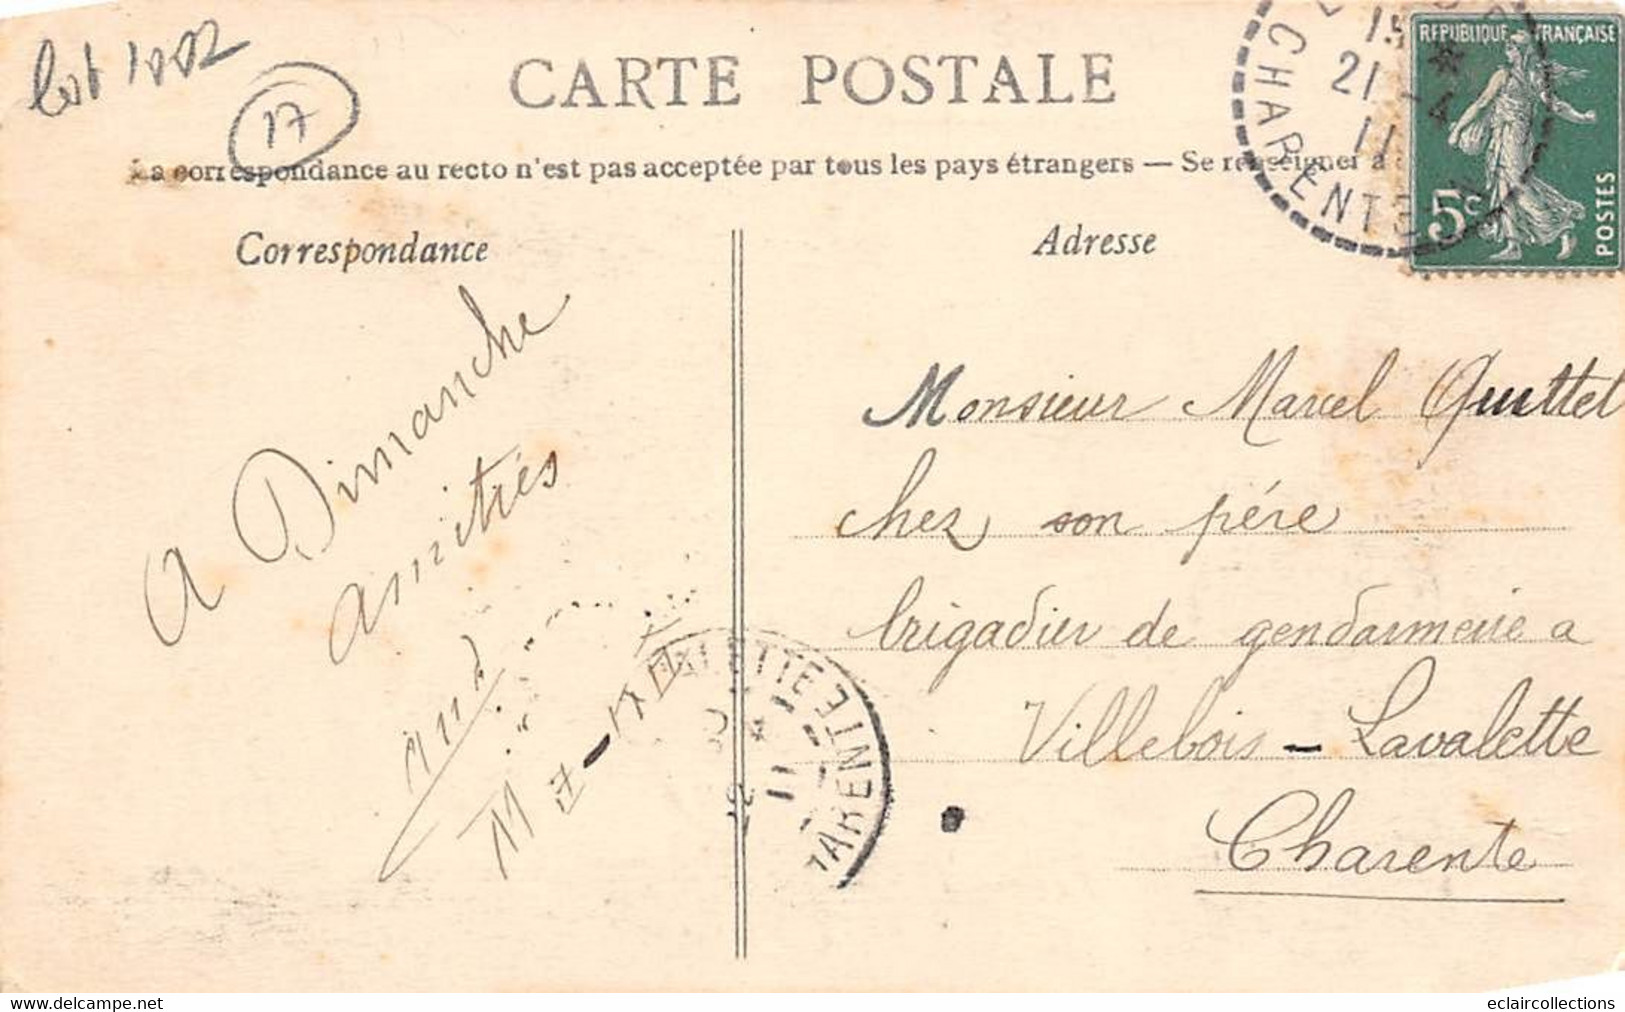 lot 1002
17
CARTE POSTALE
La correspondance au recto n'est pas acceptée par tous les pays étrangers — Se renseigner à
Correspondance
Adresse
15
21 - 4
11
CHARENTE
REPUBLIQUE FRANÇAISE
5c
POSTES
A Dimanche
amitiés
Monsieur Marcel Quittet
chez son père
brigadier de gendarmerie a
Villebois - Lavalette
Charente
LETTE
11
ARENTE
eclaircollections